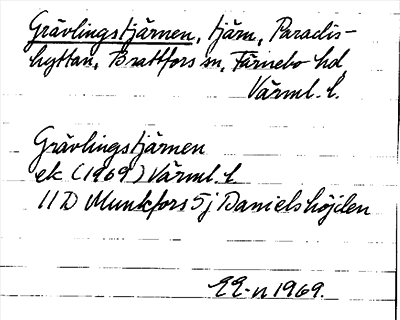 Grävlingstjärnen, tjärn, Paradis-
hyttan, Brattfors sn, Färnebo hd
Värml. l.
Grävlingstjärnen
ek (1969) Värml. l
11D Munkfors 5j Danielshöjden
EE-n 1969.